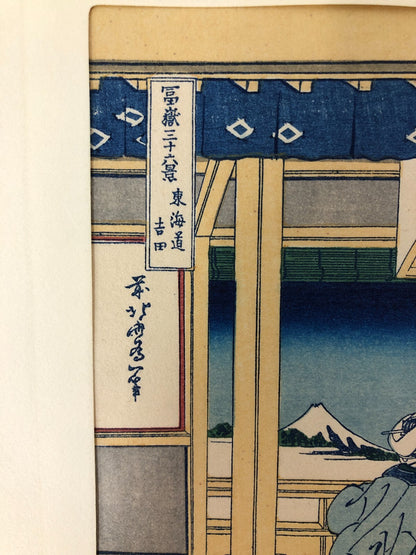 冨嶽三十六景
東海道
吉田
前北斎為一筆